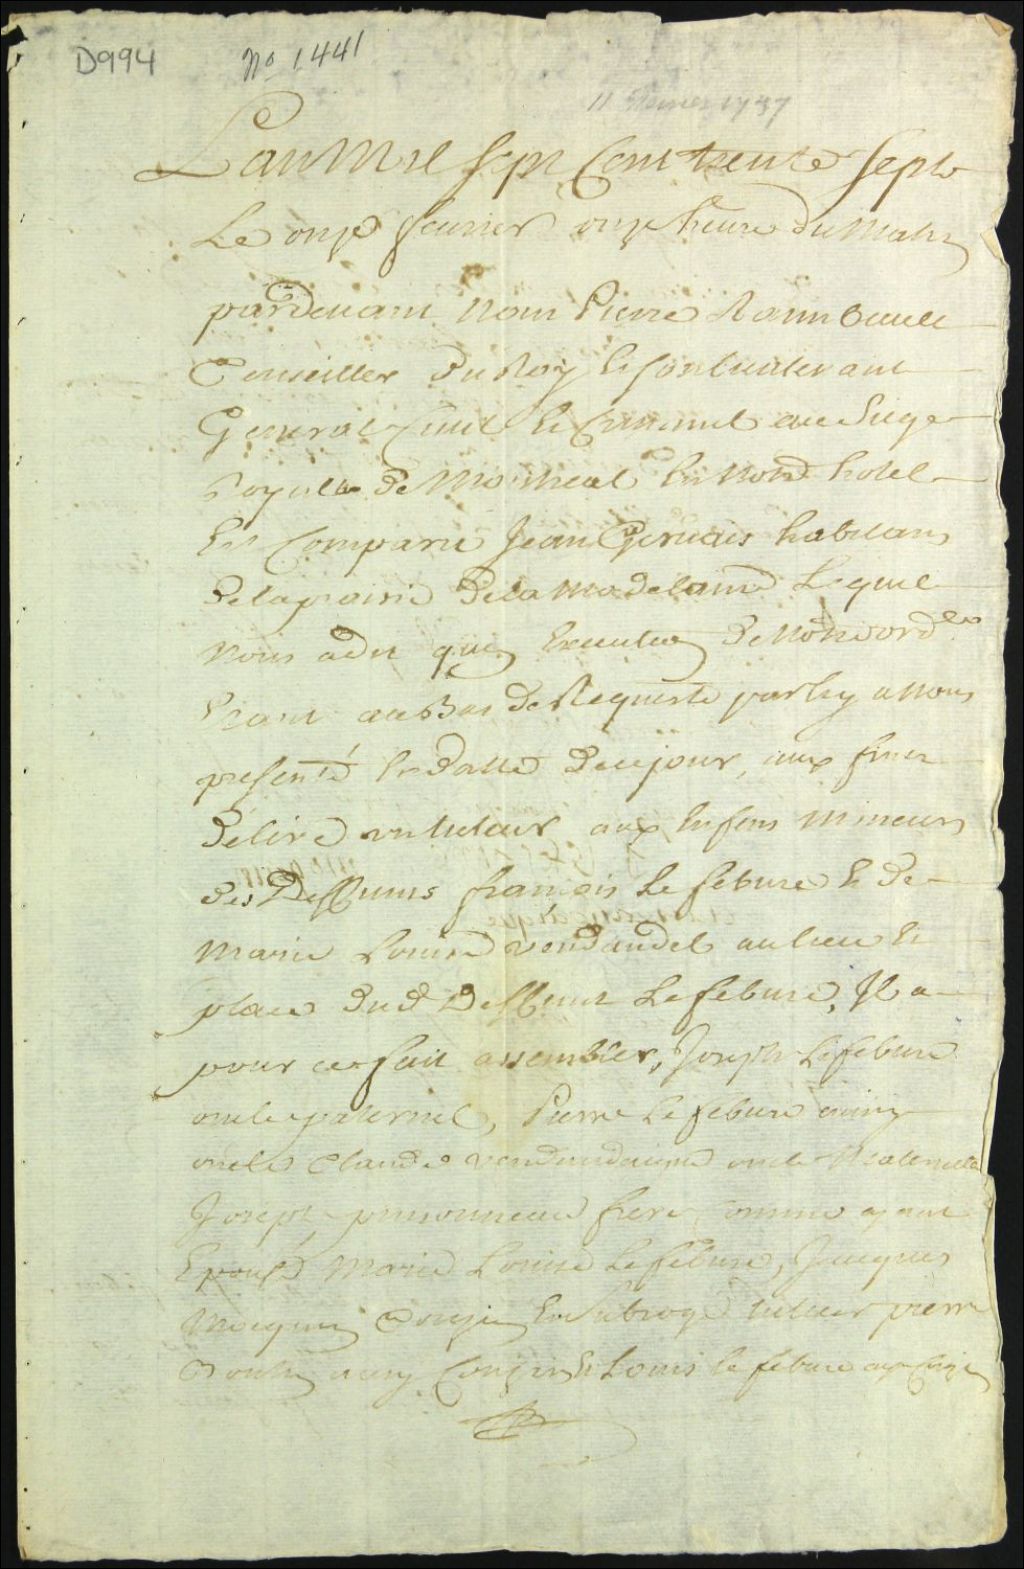 D994 No 1441
11 fevrier 1737
L'an Mil sept Cent trente sept
Le onze feurier onze heure du Matin
pardeuant Nous Pierre Raimbault
Conseiller du Roy et son Lieutenant
General Ciuil et Criminel au Siege
Royalle de Montreal En Notre hotel
Est Comparu Jean Geruais habitant
de la prairie de la Madelaine Lequel
Nous a dit que En Execution de Notre ord.ce
Etant au Bas de Requeste par luy a Nous
presenté En datte de ce jour, aux fins
d'élire un tuteur aux Enfens Mineurs
des Deffunts francois Le febure et de
Marie Louise vendandel au lieu et
place dud Deffunt Le febure, Il a
pour ce fait assembler, Joseph Lefebure
oncle paternel, Pierre Le febure aussy
oncle Claude vendandaique oncle Maternelle
Joseph pinsonneau frere Comme ayant
Epousé Marie Louise Le febure, Jacques
Cousin Et subrogé tuteur pierre
aussy Cousin Et Louis le febure aussy Cousin